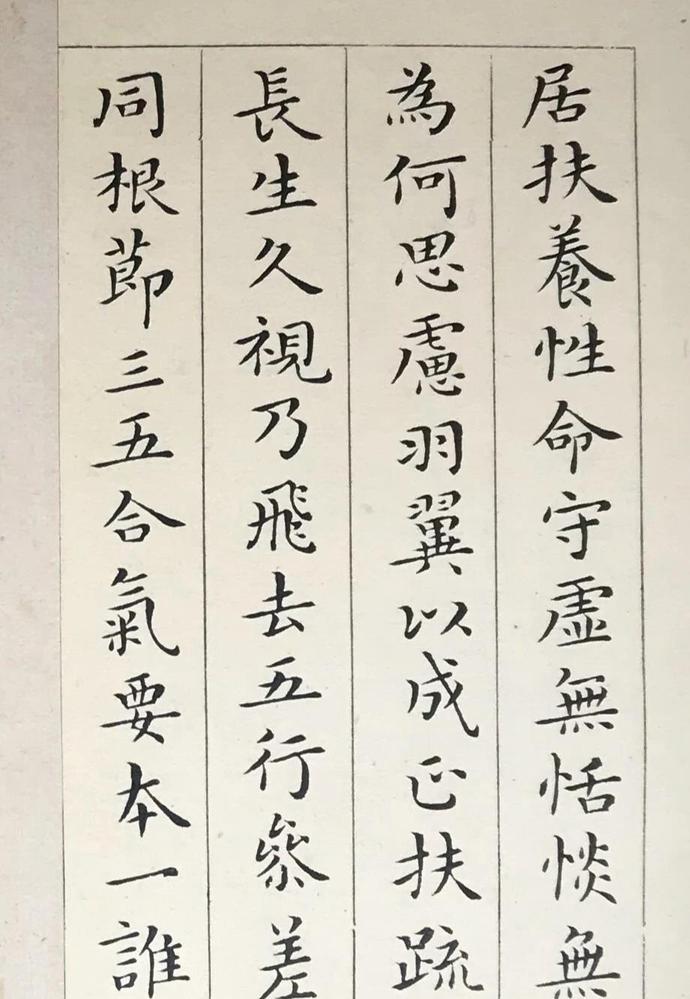 居扶養性命守虛無恬惔無
為何思慮羽翼以成正扶疏
長生久視乃飛去五行參差
同根節三五合氣要本一誰